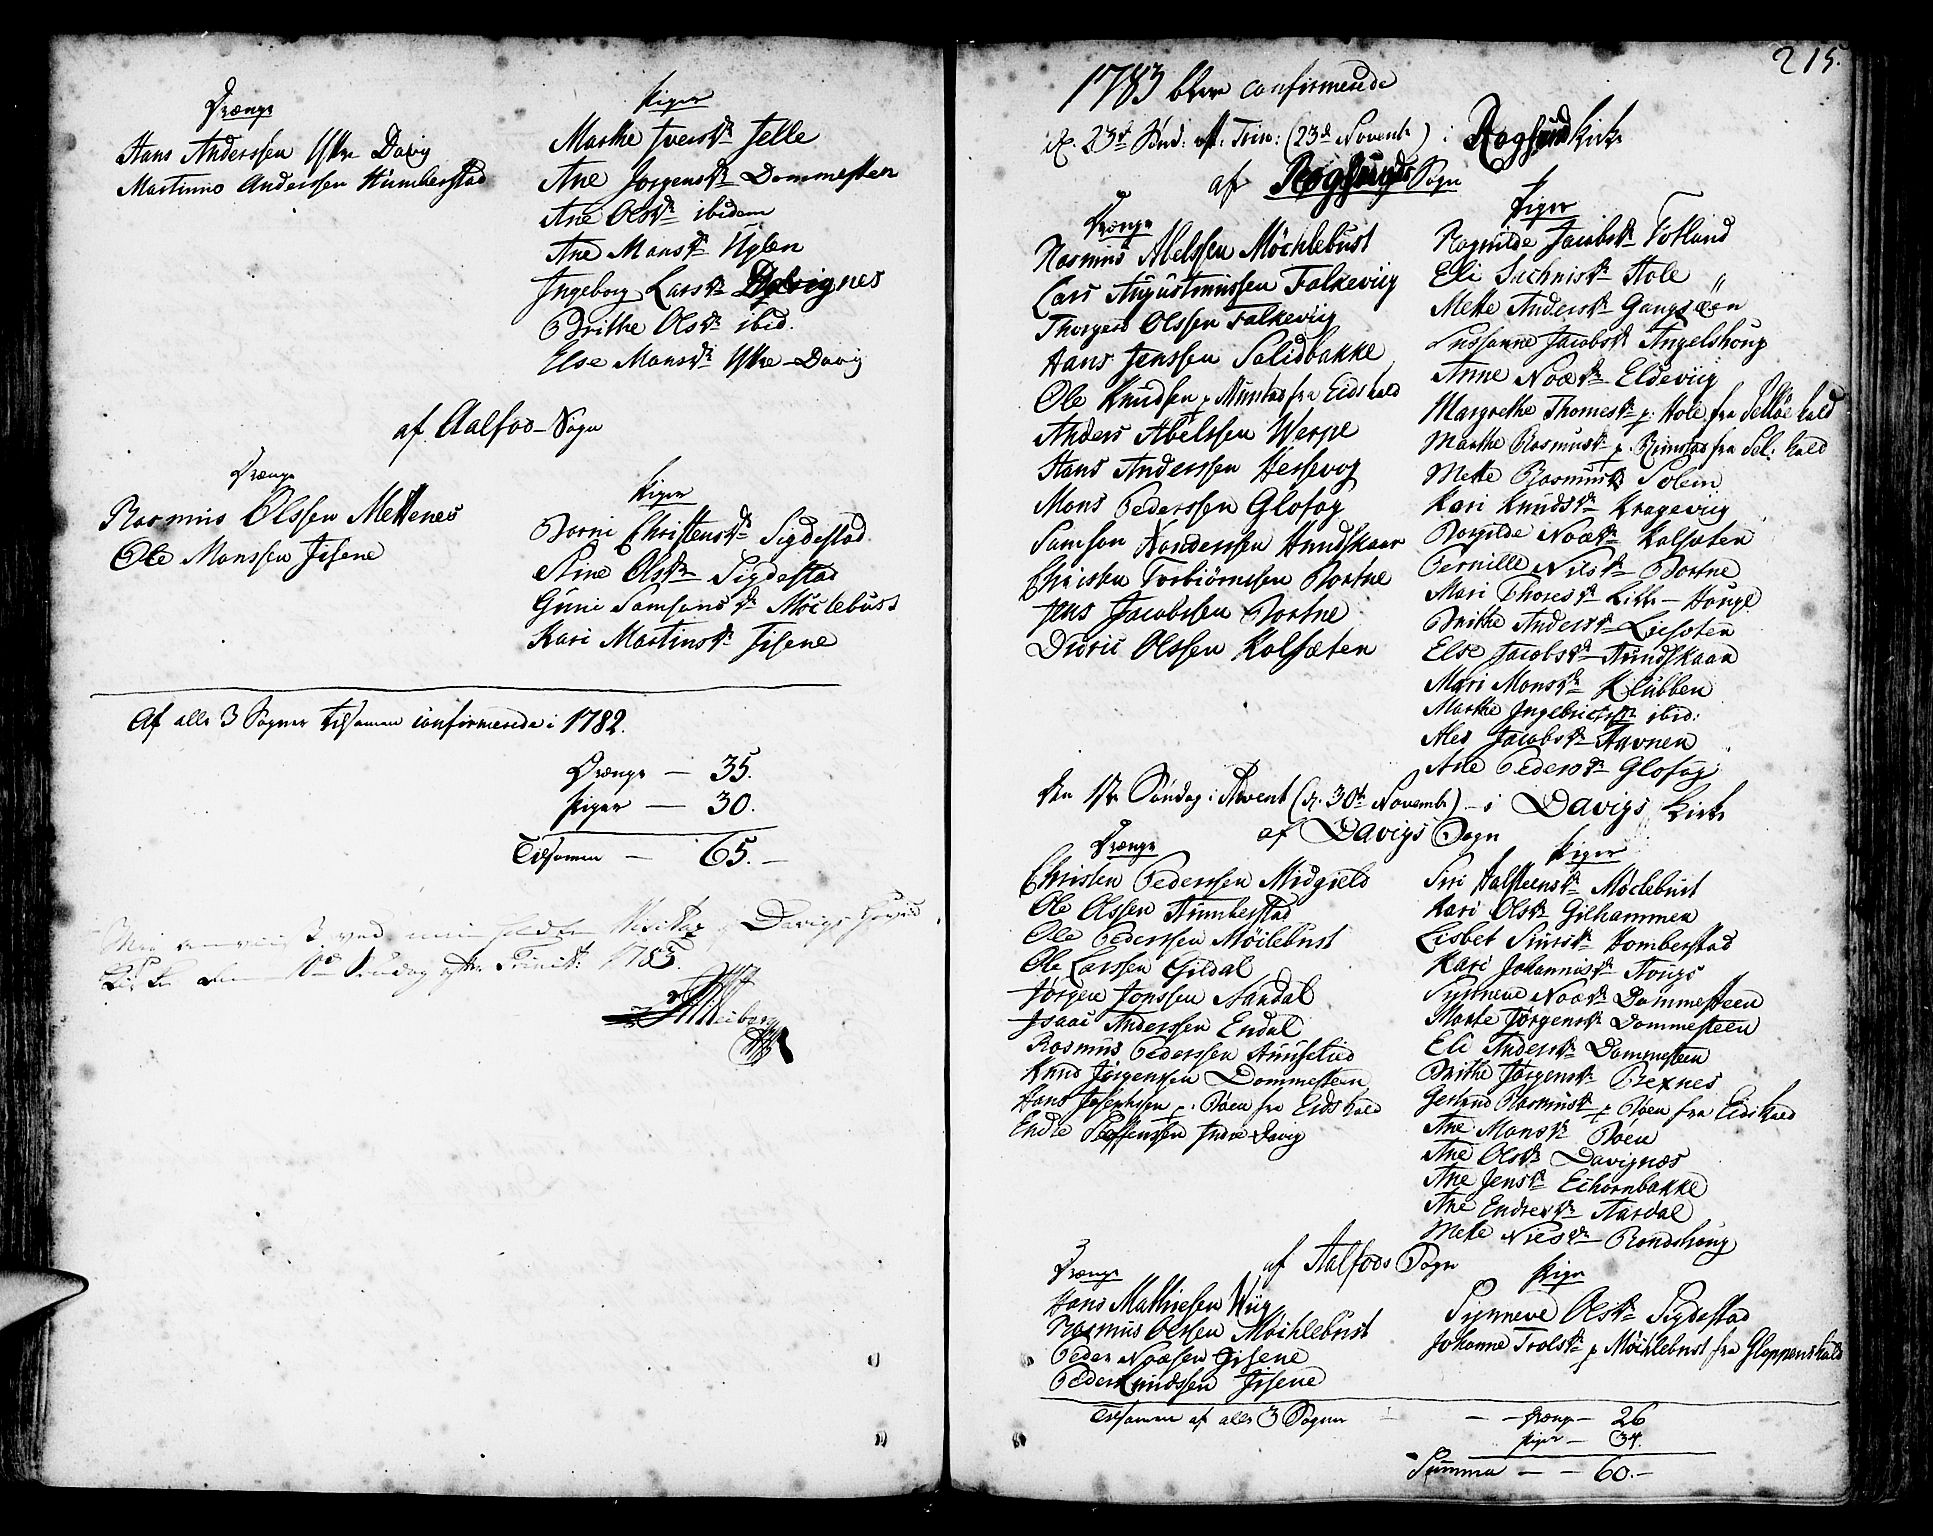 Drænge
Hans Anderssen Ystre Davig
Martinus Anderssen Humberstad
Piger
Marthe Iversdr Jelle
Ane Jørgensdr Dommesten
Ane Olsdr ibidem
Ane Mansdr Uglen
Ingeborg Larsdr Davignes
Brithe Olsdr ibid.
Else Mansdr Ystre-Davig
af Aalfoo-Sogn
Drænge
Rasmus Olssen Mettenes
Ole Monssen Isene
Piger
Borni Christensdr Sigdestad
Stine Olsdr Sigdestad
Guni Samsonsdr Möclebust
Kari Martinsdr Isene
Af alle 3 Sogner tilsamen confirmerede i 1782.
Drænge — 35.
Piger — 30.
Tilsamen — 65. —
ved min holdte Visitas i Davigs Hoved
Kirke den Søndag efter Trinit: 1785.
215.
1783 blev confirmerede
d. 23de Sönd: eft: Trin: (23de Novembr) i Rogsund Kirke
af Rogsunds Sogn
Drænge
Rasmus Abelssen Möchlebust
Lars Augustinussen Falkeviig
Thorgerd Olssen Falkeviig
Hans Jenssen Salidbakke
Ole Knudsen p. Nunstad fra Eids kald
Anders Abelssen Werpe
Hans Anderssen Hessevog
Mons Pederssen Glofog
Samson Handerssen Hundskaar
Christen Torbiörnssen Bortne
Jens Jacobssen Bortne
Didric Olssen Kalsæten
Piger
Ragnilde Jacobsdr Totland
Eli Sachrisdr Hole
Mette Andersdr Gangsöen
Sussanne Jacobsdr Angelshoug
Anne Noædr Eldeviig
Margrethe Thomesdr p. Hole fra Selløe kald
Marthe Rasmusdr p. Rimstad fra Sel: kald
Mette Rasmusdr Solem
Kari Knudsdr Krogeviig
Borgilde Noædr Kalsæten
Pernille Nilsdr Bortne
Mari Thoresdr Lille-Houge
Brithe Andersdr Liesæten
Else Jacobsdr Hundskaar
Mari Monsdr Klubben
Marthe Ingebrictsdr ibid:
Ales Jacobsdr Havnen
Ane Pedersdr Glofog
den 1ste Söndag i Advent (d. 30te Novembr) - i Davigs Kirke
af Davigs Sogn
Drænge
Christen Pederssen Midgield
Ole Olssen Humberstad
Ole Pederssen Möclebust
Ole Larssen Gildal
Jörgen Jonssen Aardal
Isaac Anderssen Endal
Rasmus Pederssen Huuselied
Knud Jörgenssen Dommesteen
Hans Josephsen p. Böen fra Eids kald
Endre Steffenssen Indre Davig
Piger
Siri Halsteensdr Möclebust
Kari Olsdr Gilhammen
Lisbet Simsdr Homberstad
Kari Johannisdr Hougs
Synneve Noædr Dommesteen
Marte Jörgensdr Dommesteen
Eli Andersdr Dommesteen
Brithe Jörgensdr Rexnes
Gertrud Rasmusdr p. Böen fra Eids kald
Ane Monsdr Böen
Ane Olsdr Davignæs
Ane Jensdr Echornbakke
Ane Endresdr Aardal
Mette Nilsdr Rondehoug
af Aalfoos Sogn
Drænge
Hans Mathiesen Wiig
Rasmus Olssen Möchlebust
Peder Noæsen Isene
Peder Knudssen Isene
Piger
Synneve Olsdr Sigdestad
Johanne Trolsdr p. Möchlebust fra Gloppens kald
Tilsamen af alle 3 Sogner - - Drænge — 26
Piger — 34.
Summa — — 60. —